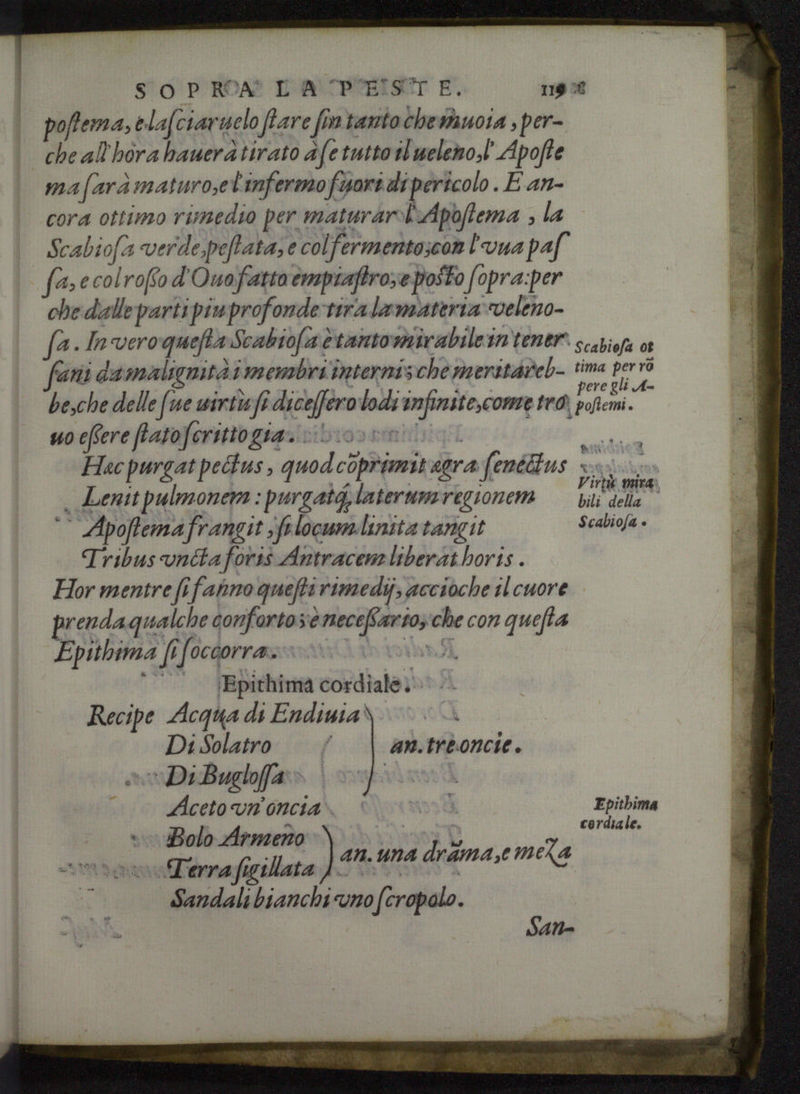 SOPRA LA PESTE. 119
postema, e lasciaruelo stare fin tanto che muoia, per-
che all'hora hauerà tirato à se tutto il ueleno, l'Aposte
ma sarà maturo, e l'infermo fuori di pericolo. E an-
cora ottimo rimedio per maturar l'Apostema, la
Scabiosa verde, pestata, e col fermento, con l'vua pas
sa, e col rosso d'Ouo fatto empiastro, e posto sopra: per
che dalle parti piu profonde tira la materia veleno-
sa. In vero questa Scabiosa è tanto mirabile in tener
sani da malignità i membri interni; che meritareb-
be, che delle sue uirtù si dicessero lodi infinite, come tro
uo essere stato scritto gia.
Scabiosa ot
tima per rõ
pere gli A-
postemi.
Hæc purgat pectus, quod cõprimit ægra senectus
Lenit pulmonem: purgatq; laterum regionem
Apostema frangit, si locum linita tangit
Tribus vncta foris Antracem liberat horis.
Virtù mira
bili della
Scabiosa.
Hor mentre si fanno questi rimedij, accioche il cuore
prenda qualche conforto; è necessario, che con questa
Epithima si soccorra.
Epithima cordiale.
Recipe Acqua di Endiuia
Di Solatro an. tre oncie.
Di Buglossa
Aceto vn'oncia
Epithima
cordiale.
Bolo Armeno
Terra sigillata an. una drãma, e meza
Sandali bianchi vno scropolo.
San-